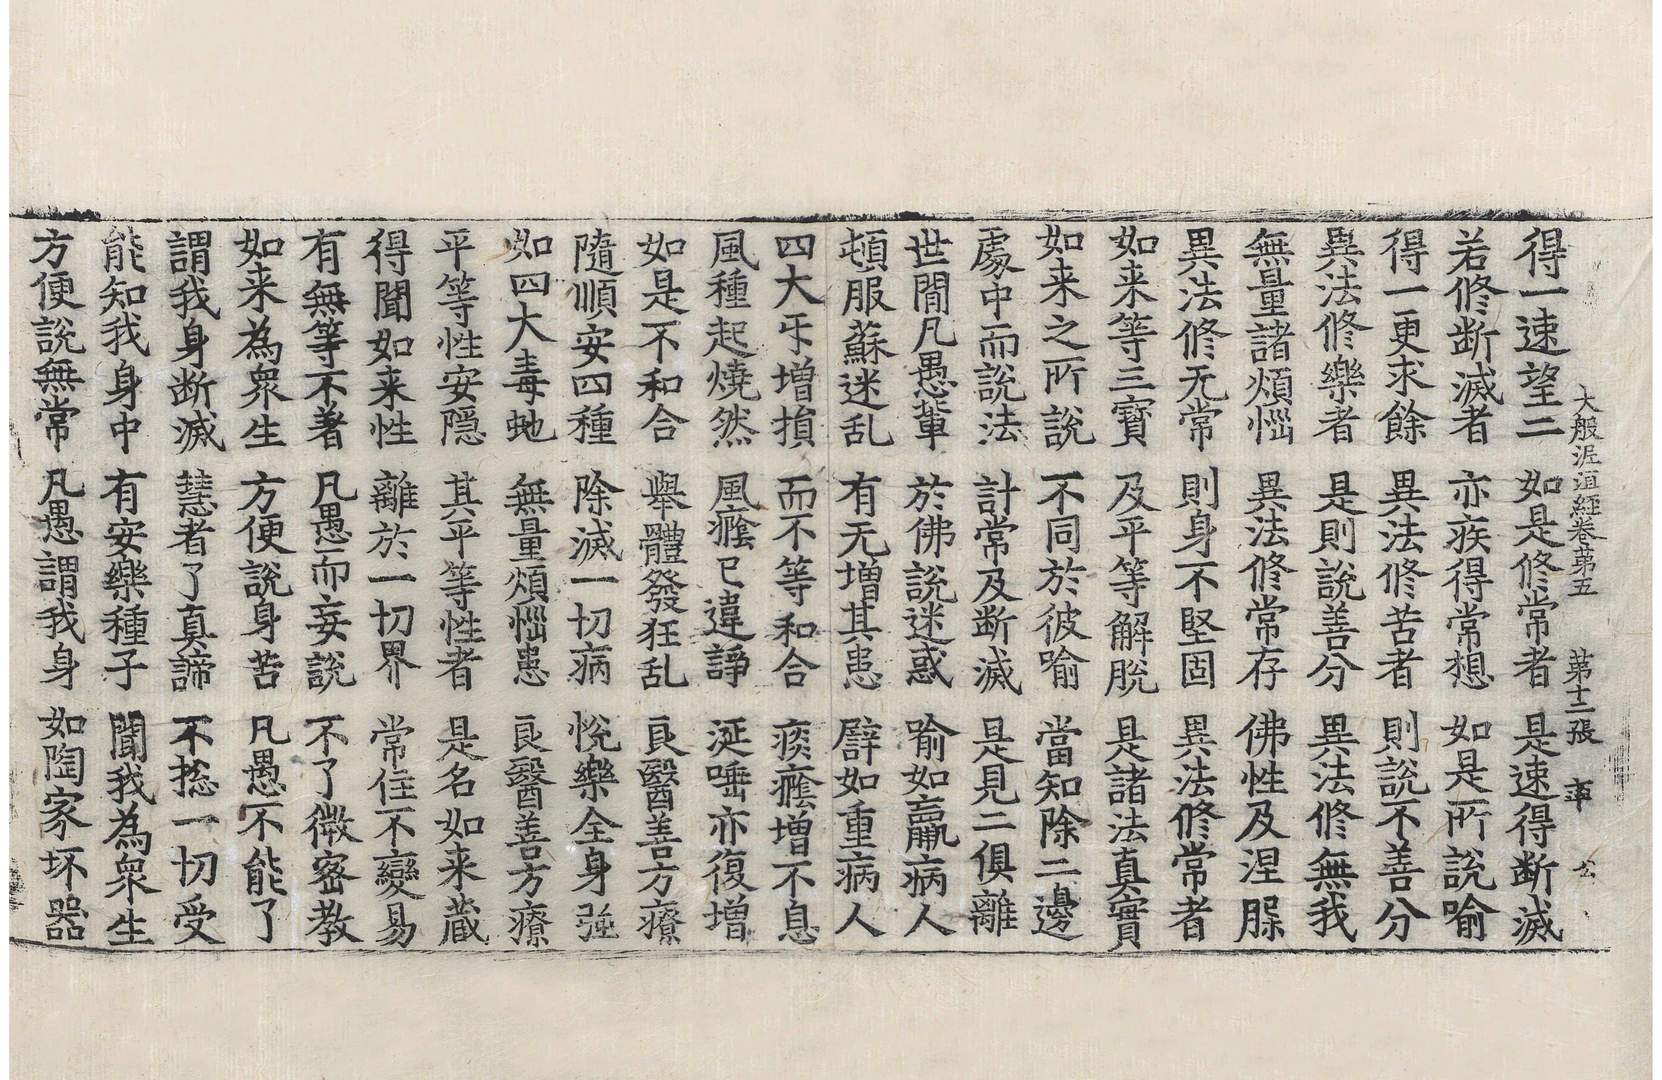 大般泥洹經卷第五 第十二張 率 公
得一速望二 如是修常者 是速得斷滅
若修斷滅者 亦疾得常想 如是所說喻
得一更求餘 異法修苦者 則說不善分
異法修樂者 是則說善分 異法修無我
無量諸煩惱 異法修常存 佛性及涅槃
異法修无常 則身不堅固 異法修常者
如来等三寳 及平等解脫 是諸法真實
如来之所說 不同於彼喻 當知除二邊
處中而說法 計常及斷滅 是見二俱離
世間凡愚輩 於佛說迷惑 喻如羸病人
頓服蘇迷乱 有无增其患 譬如重病人
四大互增損 而不等和合 痰癊增不息
風種起燒然 風癊已違諍 涎唾亦復增
如是不和合 舉體發狂乱 良醫善方療
隨順安四種 除滅一切病 悅樂全身強
如四大毒虵 無量煩惱患 良醫善方療
平等性安隱 其平等性者 是名如来藏
得聞如来性 離於一切界 常住不變易
有無等不著 凡愚而妄說 不了微密教
如来為眾生 方便說身苦 凡愚不能了
謂我身斷滅 慧者了真諦 不捴一切受
能知我身中 有安樂種子 聞我為眾生
方便說無常 凡愚謂我身 如陶家坏器